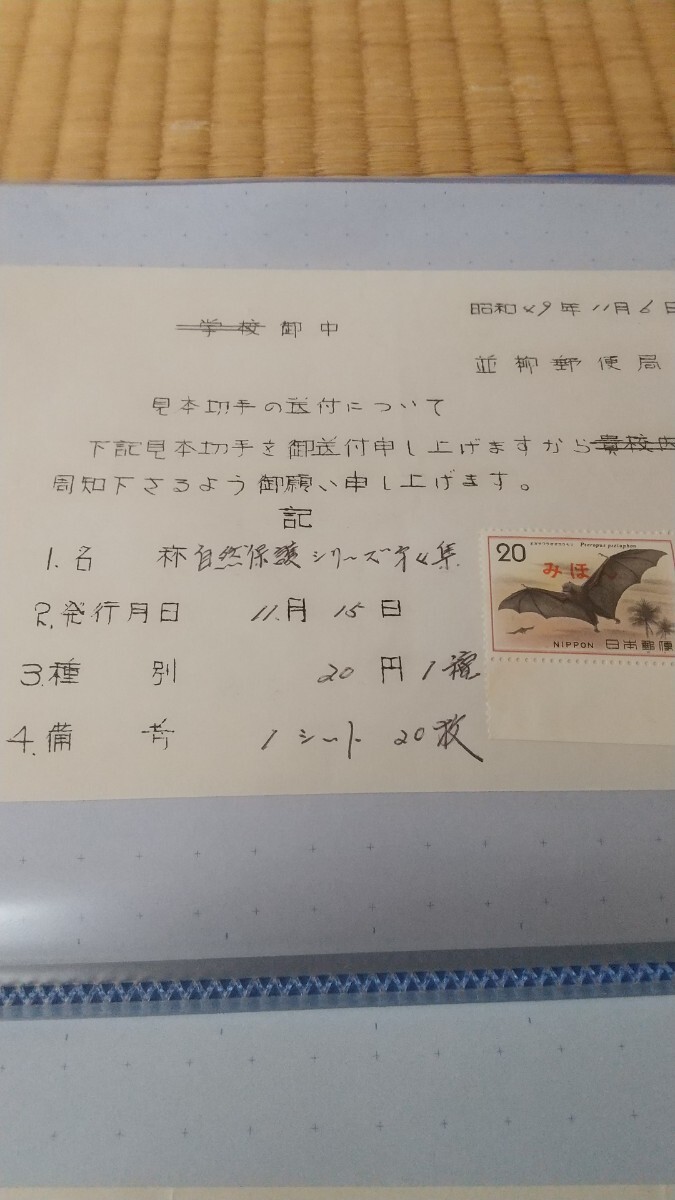 昭和49年11月6日
学校御中
並柳郵便局
見本切手の送付について
下記見本切手を御送付申し上げますから貴校内
周知下さるよう御願い申し上げます。
記
1.名 称 自然保護シリーズ第4集
2.発行月日 11.月 15日
3.種 別 20円1種
4.備 考 1シート 20枚
20
Pteropus pselaphon
みほん
NIPPON 日本郵便